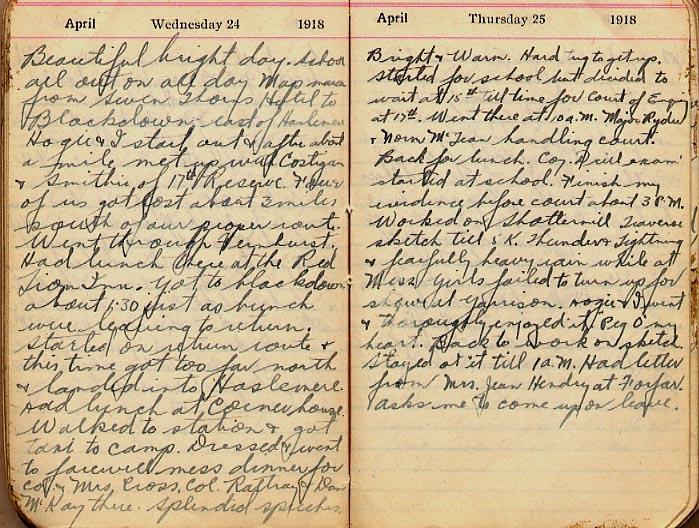 April Wednesday 24 1918
Beautiful bright day. School
all out on all day Map march
from Seven Thorns Hotel to
Blackdown east of Haslemere
Hogie & I start out & after about
a mile met up with Costigan
& Smithie of 17th Reserve. Four
of us got lost about 3 miles
south of our proper route.
Went through Fernhurst,
Had lunch there at the Red
Lion Inn. Got to blackdown
about 1:30 just as bunch
were leaving to return.
Started on return route &
this time got too far north
& landed into Haslemere.
Had lunch at Corner house.
Walked to station & got
taxi to camp. Dressed & went
to farewell mess dinner for
Col & Mrs. Cross. Col. Rattray & Dan
McKay there. Splendid speeches.
April Thursday 25 1918
Bright & Warm. Hard tug to get up.
Started for school but decided to
wait at 15th till time for Court of Enquiry
at 17th. Went there at 10 a.m. Major Ryder
& Norm McLean handling court.
Back for lunch. Coy. Drill exam
started at school. Finish my
evidence before court about 3 P.M.
Worked on Shottermill Traverse
sketch till 5 K. Thunder & Lightning
& fearfully heavy rain while at
Mess. Girls failed to turn up for
show at Garrison. Hogie & I went
& thoroughly enjoyed it Peg O' my
heart. Back to work on sketch.
Stayed at it till 1 a.m. Had letter
from Mrs. Jean Hendry at Forfar
asks me to come up on leave.